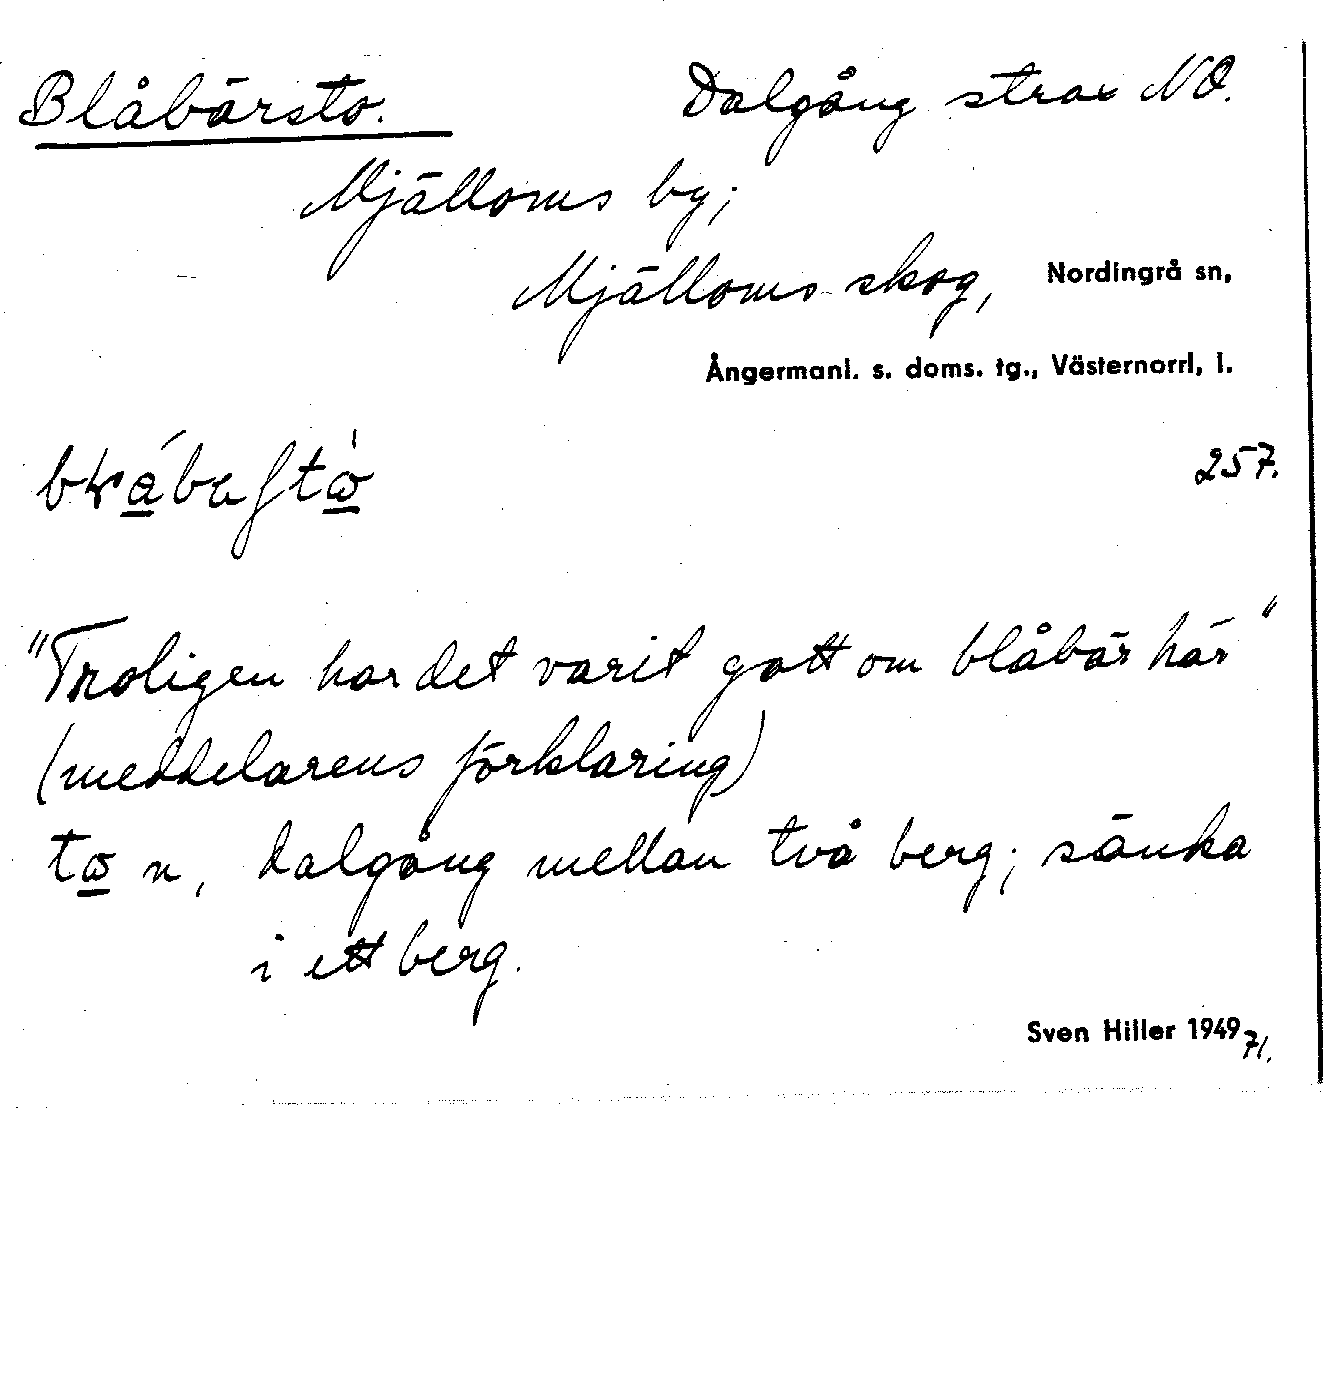 Blåbärsto. Dalgång strax NO.
Mjälloms by;
Mjälloms skog, Nordingrå sn,
Ångermanl. s. doms. tg., Västernorrl, l.
257.
"Troligen har det varit gott om blåbär här"
(meddelarens förklaring)
tω n, dalgång mellan två berg; sänka
i ett berg.
Sven Hiller 1949
71.